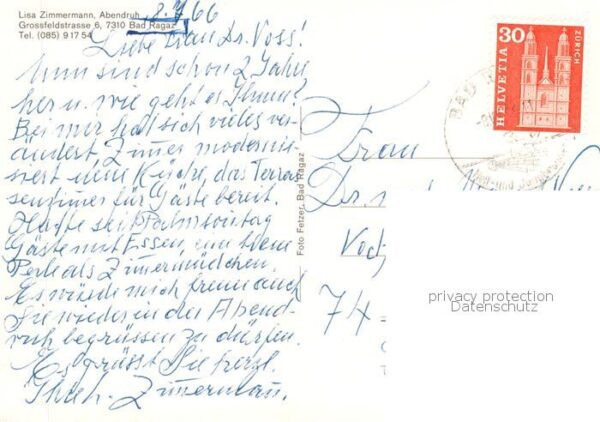 Lisa Zimmermann, Abendruh
Grossfeldstrasse 6, 7310 Bad Ragaz
Tel. (085) 9 17 54
66
Liebe Frau Dr. Voss!
Nun sind schon 2 Jahre
her u. wie geht es Ihnen?
Bei mir hat sich vieles ver-
ändert, Zimmer modernis-
iert neue Küche, das Terras
senzimmer für Gäste bereit.
Hatte seit Palmsonntag
Gäste mit Essen, eine
Perle als Zimmermädchen.
Es würde mich freuen auch
Sie wieder in der Abend-
ruh begrüssen zu dürfen.
Es grüsst Sie herzl.
Ihre Zimmermann.
Foto Fetzer, Bad Ragaz
30
HELVETIA
ZÜRICH
BAD
Frau
Dr.
74
privacy protection
Datenschutz